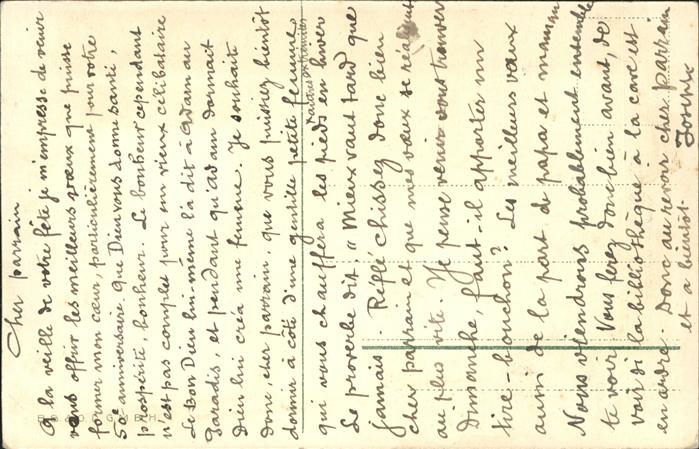 Cher parrain
A la veille de votre fête je m'empresse de venir
vous offrir les meilleurs vœux que puisse
former mon cœur, particulièrement pour votre
50e anniversaire. que Dieu vous donne santé,
prospérité, bonheur. Le bonheur cependant
n'est pas complet pour un vieux célibataire
Le bon Dieu lui-même l'a dit à Adam au
Paradis, et pendant qu'Adam dormait
Dieu lui créa une femme. Je souhaite
donc, cher parrain, que vous puissiez bientôt
dormir à côté d'une gentille petite femme
qui vous chauffera les pieds en hiver
Le proverbe dit: "Mieux vaut tard que
jamais. Réfléchissez donc bien
cher parrain et que mes vœux se réalisent
au plus vite. Je pense venir vous trouver
Dimanche, faut-il apporter un
tire-bouchon? Les meilleurs vœux
aussi de la part de papa et maman
Nous viendrons probablement ensemble
te voir. Vous ferez donc bien avant, de
voir si la bibliothèque à la cave est
en ordre. Donc au revoir cher parrain
et à bientôt.
Joseph